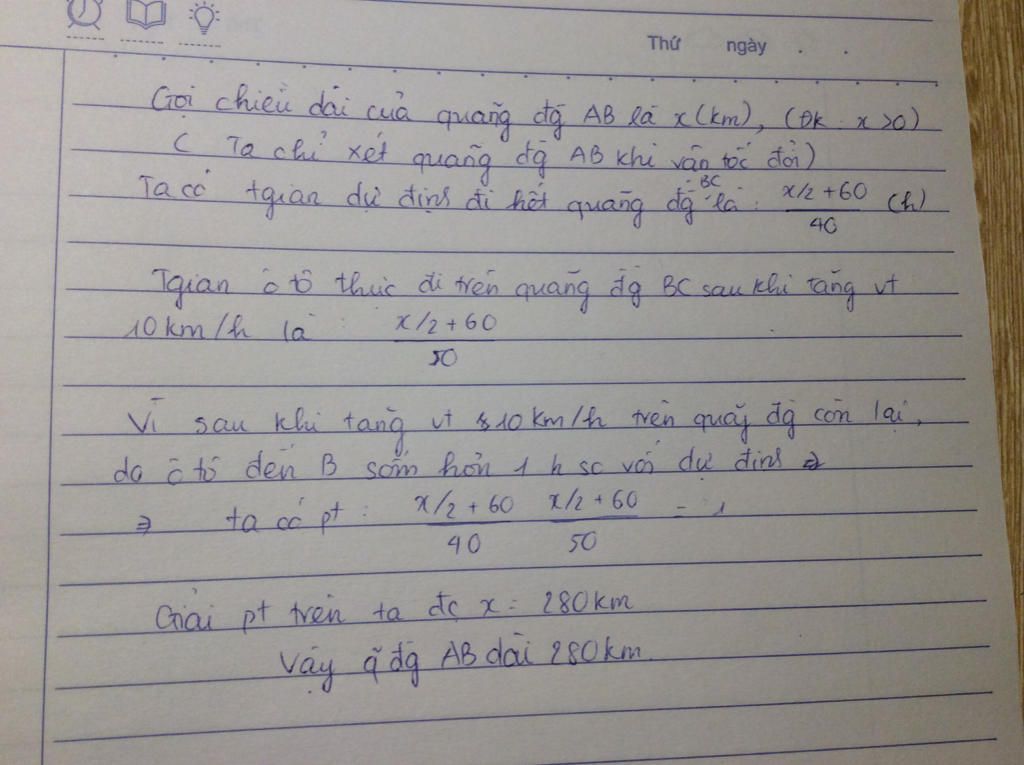 Thứ ngày . .
Gọi chiều dài của quãng đg AB là x(km), (ĐK: x>0)
( Ta chỉ xét quãng đg AB khi vận tốc đổi)
Ta có tgian dự định đi hết quãng đg BC là: x/2+60 / 40 (h)
Tgian ô tô thực đi trên quãng đg BC sau khi tăng vt
10km/h là : x/2+60 / 50
Vì sau khi tăng vt 10km/h trên quãg đg còn lại,
do ô tô đến B sớm hơn 1 h so với dự định ⇒
⇒ ta có pt: x/2+60 / 40 x/2+60 / 50 = 1
Giải pt trên ta đc x = 280km
Vậy q̃ đg AB dài 280km.